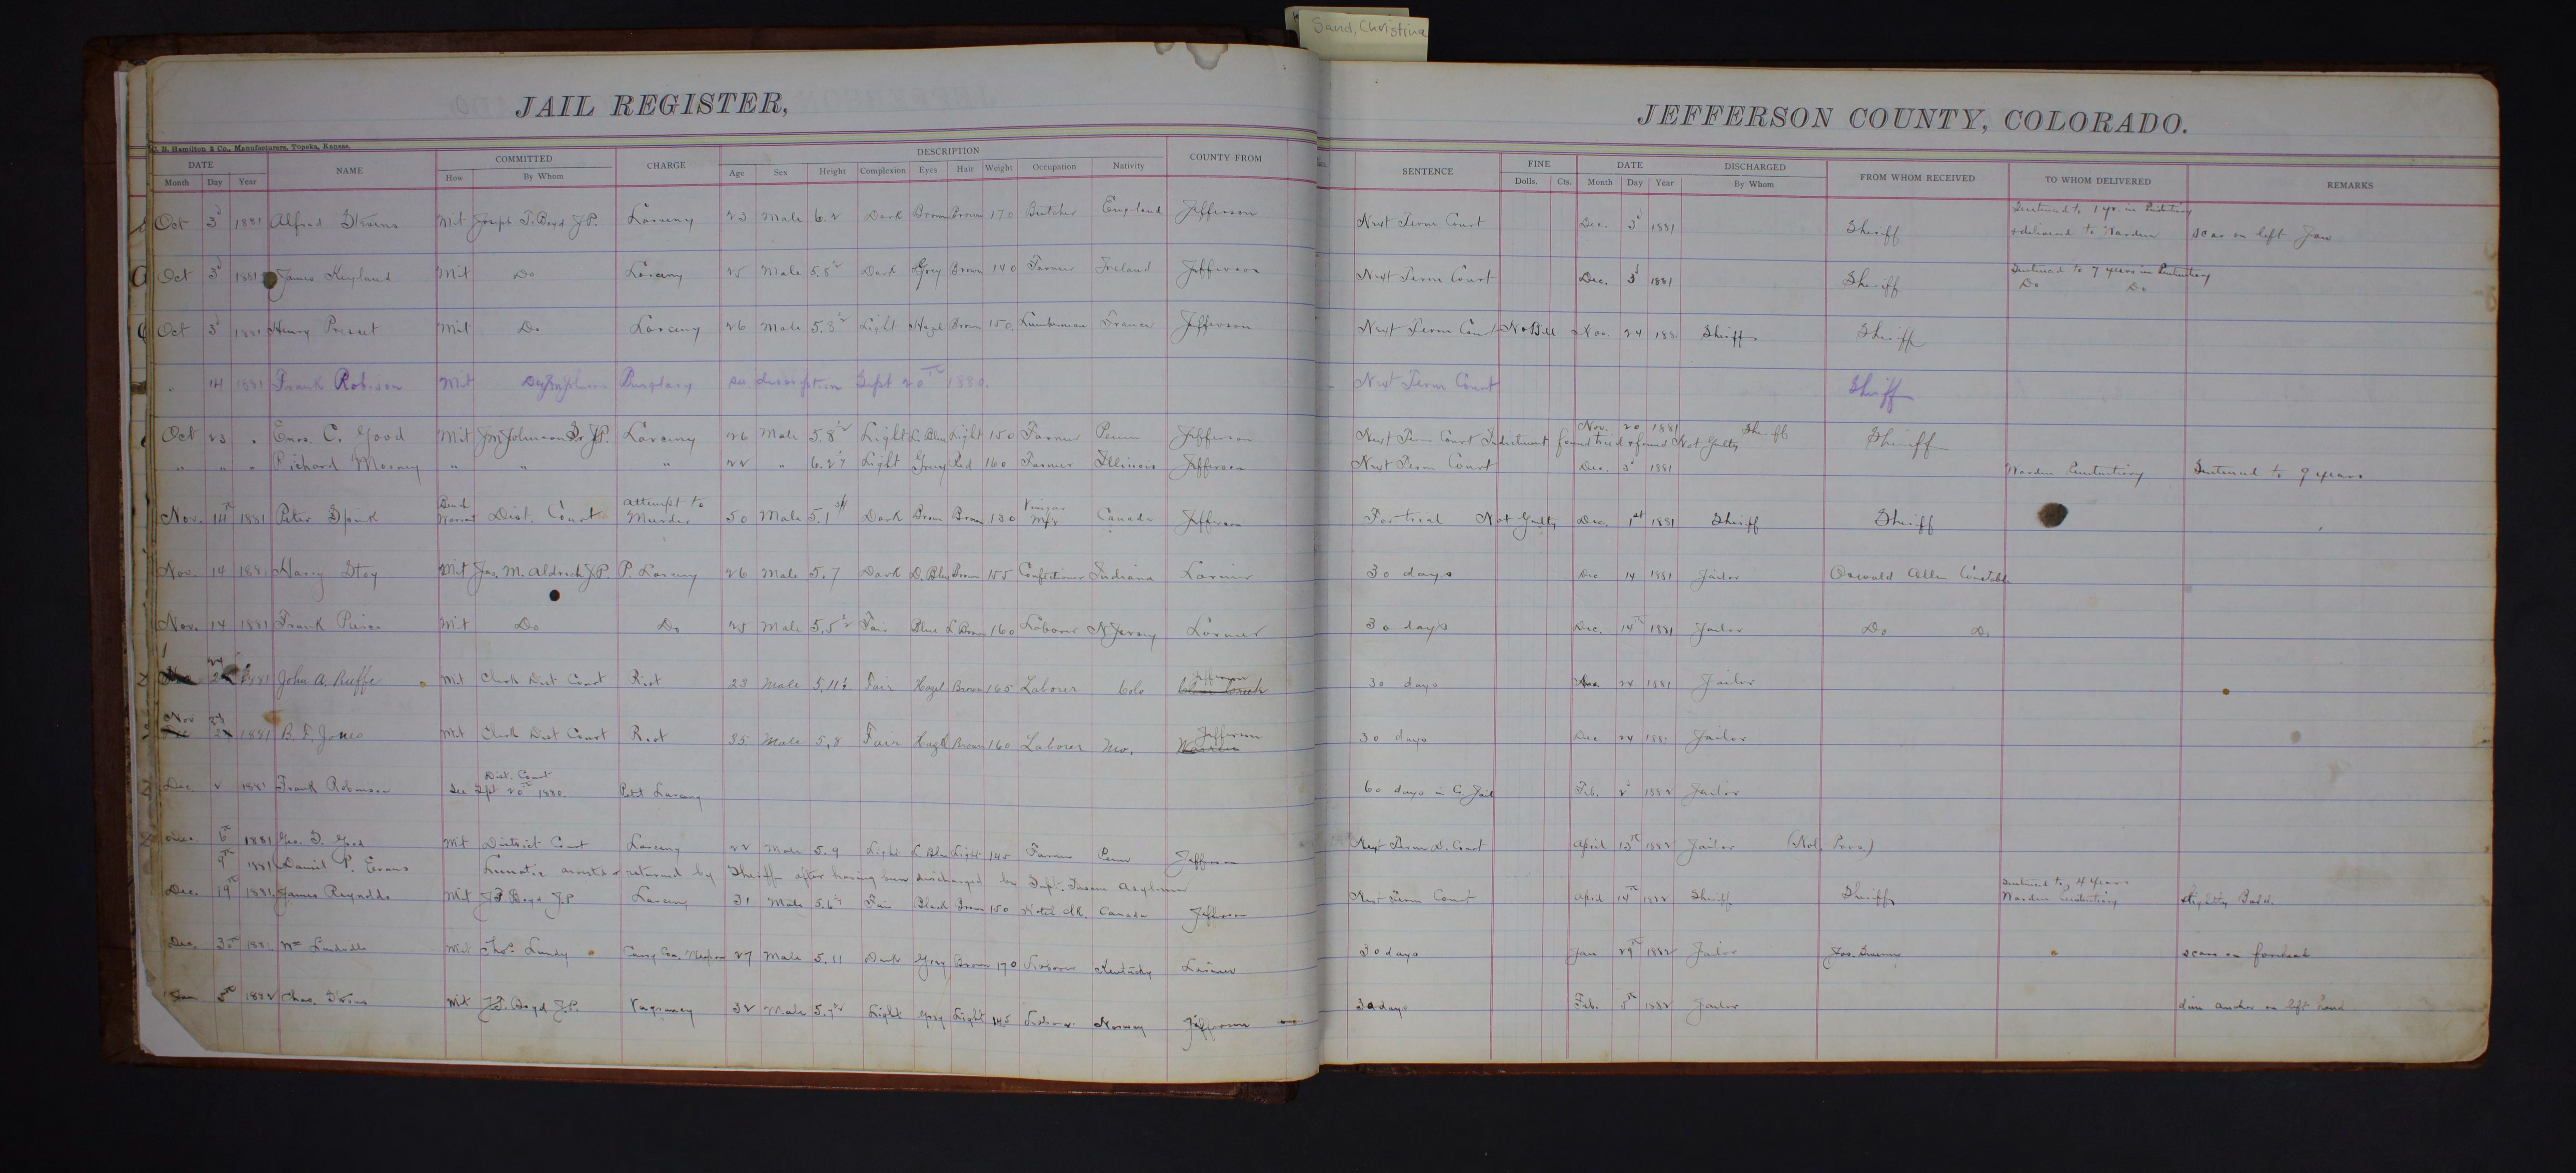 Sand, Christina
JAIL REGISTER,
JEFFERSON COUNTY, COLORADO.
C. B. Hamilton & Co., Manufacturers, Topeka, Kansas.
DATE NAME COMMITTED CHARGE DESCRIPTION COUNTY FROM SENTENCE FINE DATE DISCHARGED FROM WHOM RECEIVED TO WHOM DELIVERED REMARKS
Month Day Year How By Whom Age Sex Height Complexion Eyes Hair Weight Occupation Nativity Dolls. Cts. Month Day Year By Whom
Sentenced to 1 yr. in
Oct 3d 1881 Alfred Mit Joseph T. Boyd J.P. Larceny 23 Male 6.2 Dark Brown Brown 170 Butcher England Jefferson Next Term Court Dec. 3d 1881 Sheriff + delivered to Warden scar on left Jaw
Sentenced to 7 years in
Oct 3d 1881 James Mit Do Larceny 25 Male 5.8½ Dark Grey Brown 140 Farmer Ireland Jefferson Next Term Court Dec. 3d 1881 Sheriff Do Do
Oct 3d 1881 Henry Mit Do Larceny 26 Male 5.8½ Light Hazel Brown 150 Lumberman France Jefferson Next Term Court No Bill Nov. 24 188 Sheriff Sheriff
" 14 1881 Frank Robison Mit Burglary see description Sept 20th 1880. Next Term Court Sheriff
Nov. 20 1881 Sheriff
Oct 23 " Enos. C. Good Mit Jm Johnson Sr J.P. Larceny 26 Male 5.8½ Light L. Blue Light 150 Farmer Penn Jefferson Next Term Court Indictment found tried & found Not Guilty Sheriff
" " " Richard " " " 22 " 6. Light Grey Red 160 Farmer Illinois Jefferson Next Term Court Dec. 3d 1881 Warden Penitentiary Sentenced to 9 years
Bench attempt to Vinegar
Nov. 14th 1881 Peter Warrant Dist. Court Murder 50 Male 5.1 Dark Brown Brown 130 Mfr Canada Jefferson For trial Not Guilty Dec. 1st 1881 Sheriff Sheriff
Nov. 14 1881 Harry Stoy Mit Jas. M. Aldrich J.P. P. Larceny 26 Male 5.7 Dark D. Blue Brown 155 Confectioner Indiana Larimer 30 days Dec 14 1881 Jailor Oswald Allen Constable
Nov. 14 1881 Frank Mit Do Do 25 Male 5.5½ Fair Blue L Brown 160 Laborer N Jersey Larimer 30 days Dec. 14th 1881 Jailor Do Do
24 Jefferson
1881 John A. Ruffe Mit Clerk Dist Court Riot 23 Male 5,11½ Fair Hazel Brown 165 Laborer Colo 30 days 24 1881 Jailor
Nov 24 Jefferson
1881 B. F. Jones Mit Clerk Dist Court Riot 35 Male 5,8 Fair Hazel Brown 160 Laborer Mo. 30 days Dec 24 1881 Jailor
Dist. Court
Dec 2 1881 Frank Robinson see Spt 20th 1880 Petit Larceny 60 days in C. Jail Feb. 2d 1882 Jailor
Dec. 6th 1881 Geo. Good Mit District Court Larceny 22 Male 5.9 Light L Blue Light 145 Farmer Penn Jefferson Next Term D. Court April 13th 1882 Jailor (Nol. Pros.)
9th 1881 Daniel P. Evans Lunatic arrested & returned by Sheriff after having been discharged by Supt. Insane Asylum
Sentenced to 4 years
Dec. 19th 1881 James Reynolds Mit J T Boyd J.P. Larceny 31 Male 5.6 Fair Black Brown 150 Hotel Clk. Canada Jefferson Next Term Court April 14th 1882 Sheriff Sheriff Warden Penitentiary slightly Bald.
Dec. 30th 1881 Wm Mit Thos. Lundy Carry Con. Weapon 27 Male 5.11 Dark Gray Brown 170 Laborer Kentucky Larimer 30 days Jan 29th 1882 Jailor scars on forehead
Jan 5th 1882 Chas. Mit J.T. Boyd J.P. Vagrancy 32 Male 5.7½ Light Gray Light 145 Norway Jefferson 30 days Feb. 5th 1882 Jailor dim anchor on left hand